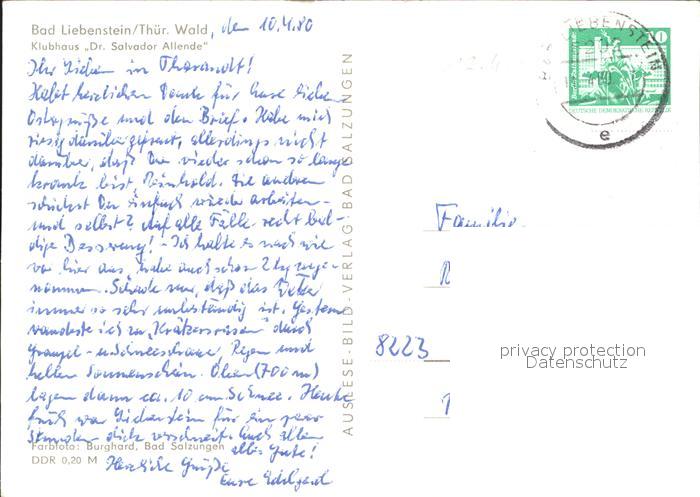 Bad Liebenstein/Thür. Wald, den 10.4.80
Klubhaus „Dr. Salvador Allende"
Ihr Lieben in Tharandt!
Habt herzlichen Dank für Eure lieben
Ostergrüße und den Brief. Habe mich
riesig darüber gefreut, allerdings nicht
darüber, daß Du wieder schon so lange
krank bist, Reinhold. Die anderen
schickst Du einfach wieder arbeiten -
und selbst? Auf alle Fälle recht bal-
dige Besserung! - Ich halte es nach wie
vor hier aus, habe auch schon 2 kg zuge-
nommen. Schade nur, daß das Wetter
immer so sehr unbeständig ist. Gestern
wanderte ich zu „Krätzersrasen" durch
Graupel- u. Schneeschauer, Regen und
hellen Sonnenschein. Oben (700 m)
lagen dann ca. 10 cm Schnee. Heute
früh war Liebenstein für ein paar
Stunden dick verschneit. Euch allen
alles Gute!
Herzliche Grüße
Eure Edelgard
Farbfoto: Burghard, Bad Salzungen
DDR 0,20 M
AUSLESE-BILD-VERLAG · BAD SALZUNGEN
LIEBENSTEIN
e
DEUTSCHE DEMOKRATISCHE REPUBLIK
Familie
8223
privacy protection
Datenschutz